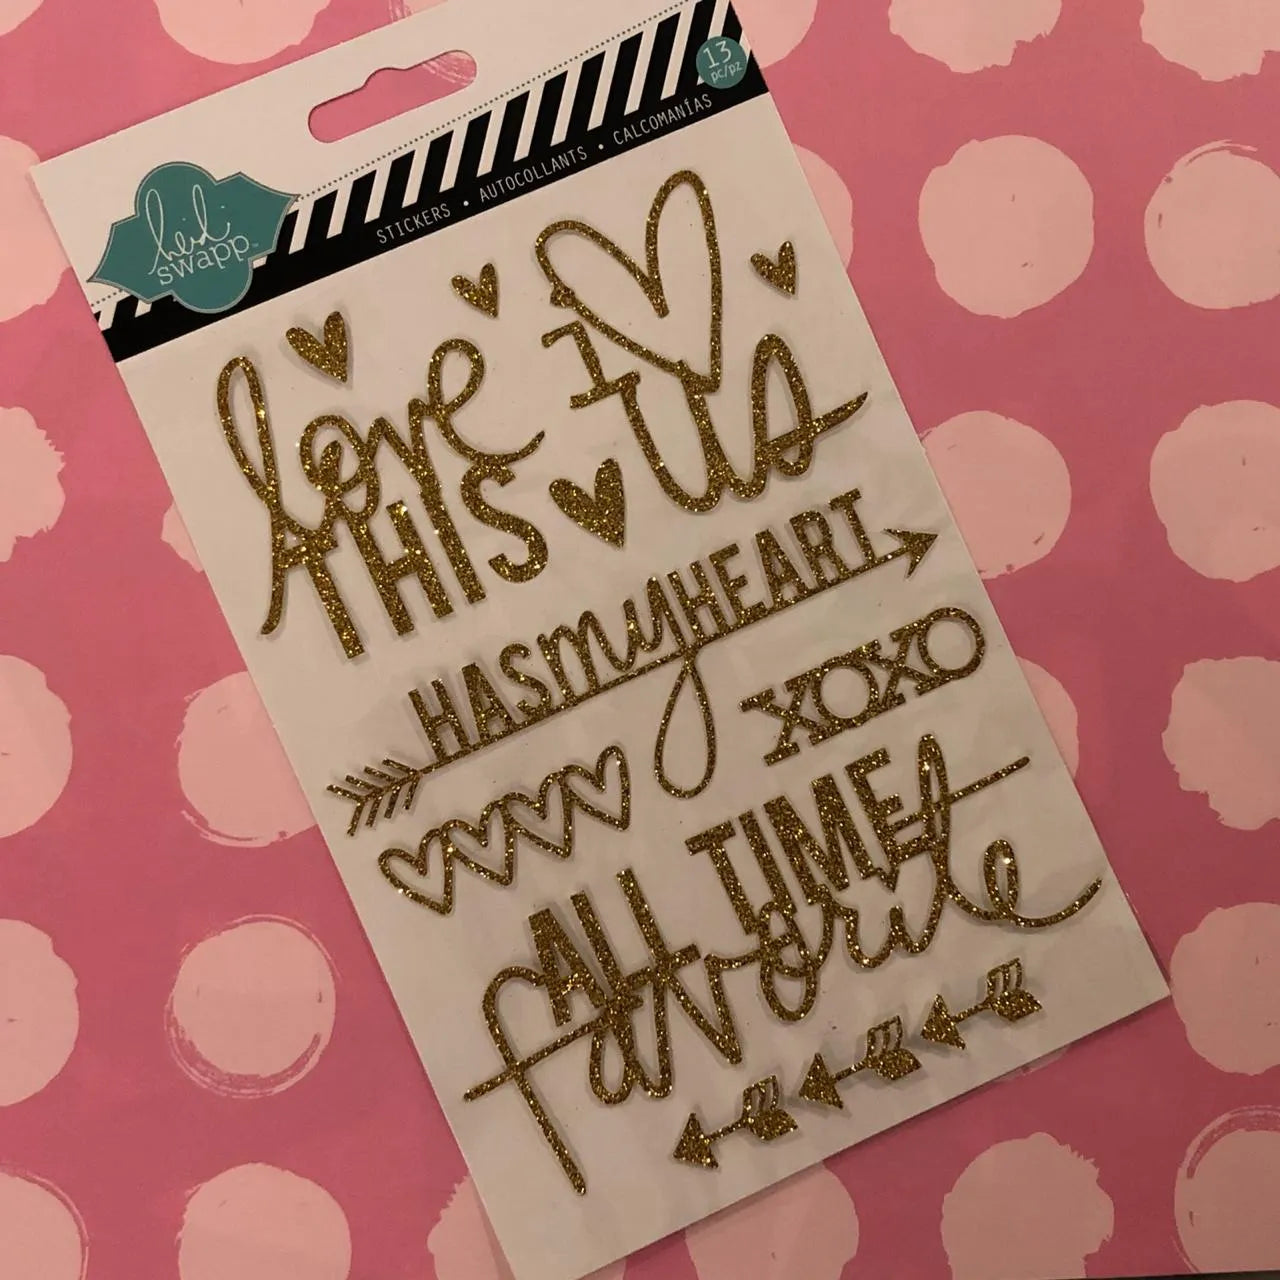 13
pc/pz
heidi
swapp™
STICKERS • AUTOCOLLANTS • CALCOMANÍAS
love
THIS
I
us
HAS my HEART
XOXO
ALL TIME
favorite